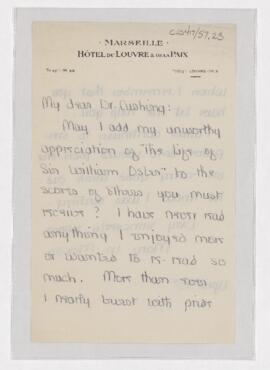 MARSEILLE
HÔTEL DU LOUVRE & DE LA PAIX
My dear Dr. Cushing:
May I add my unworthy
appreciation of "The Life of
Sir William Osler" to the
scores of others you must
receive? I have never read
anything I enjoyed more
or wanted to re-read so
much. More than ever
I nearly burst with pride